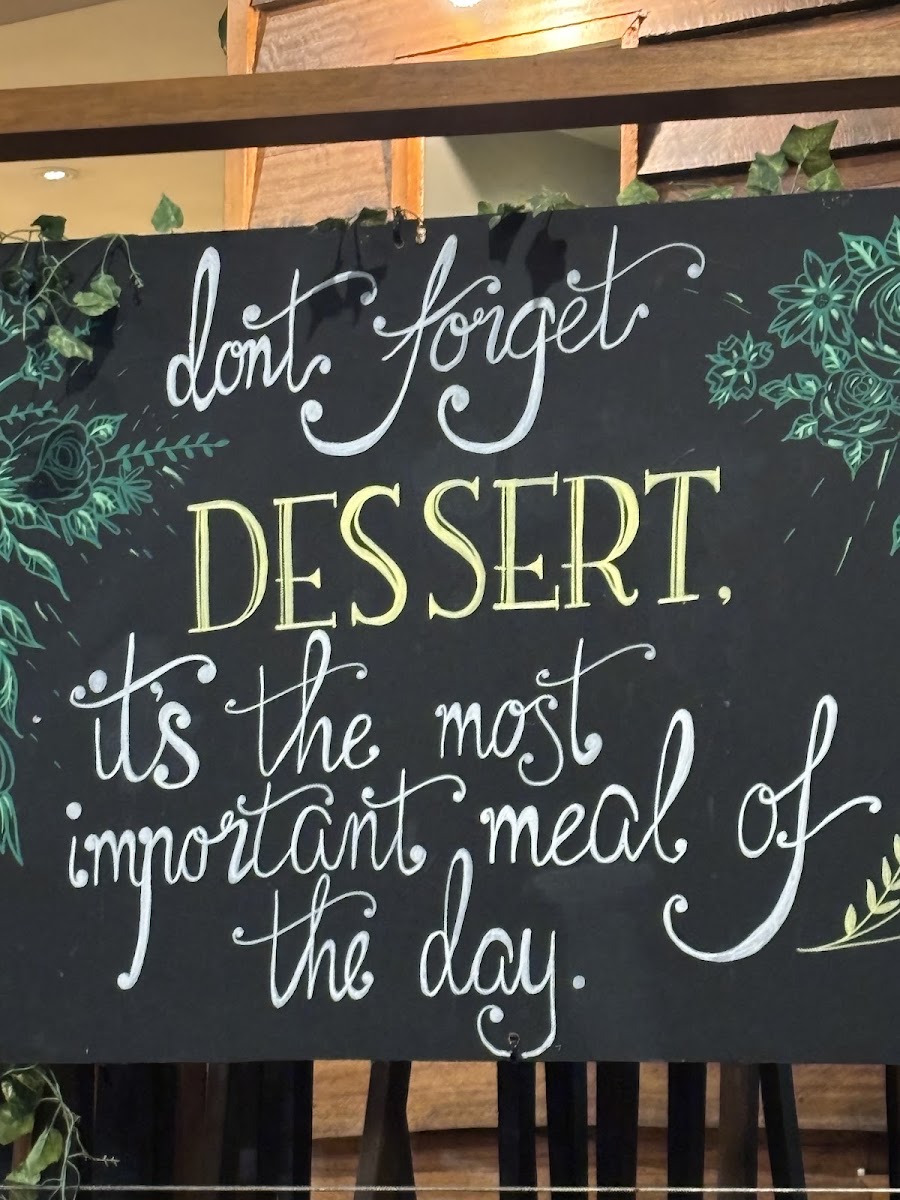 dont forget
DESSERT,
it's the most
important meal of
the day.